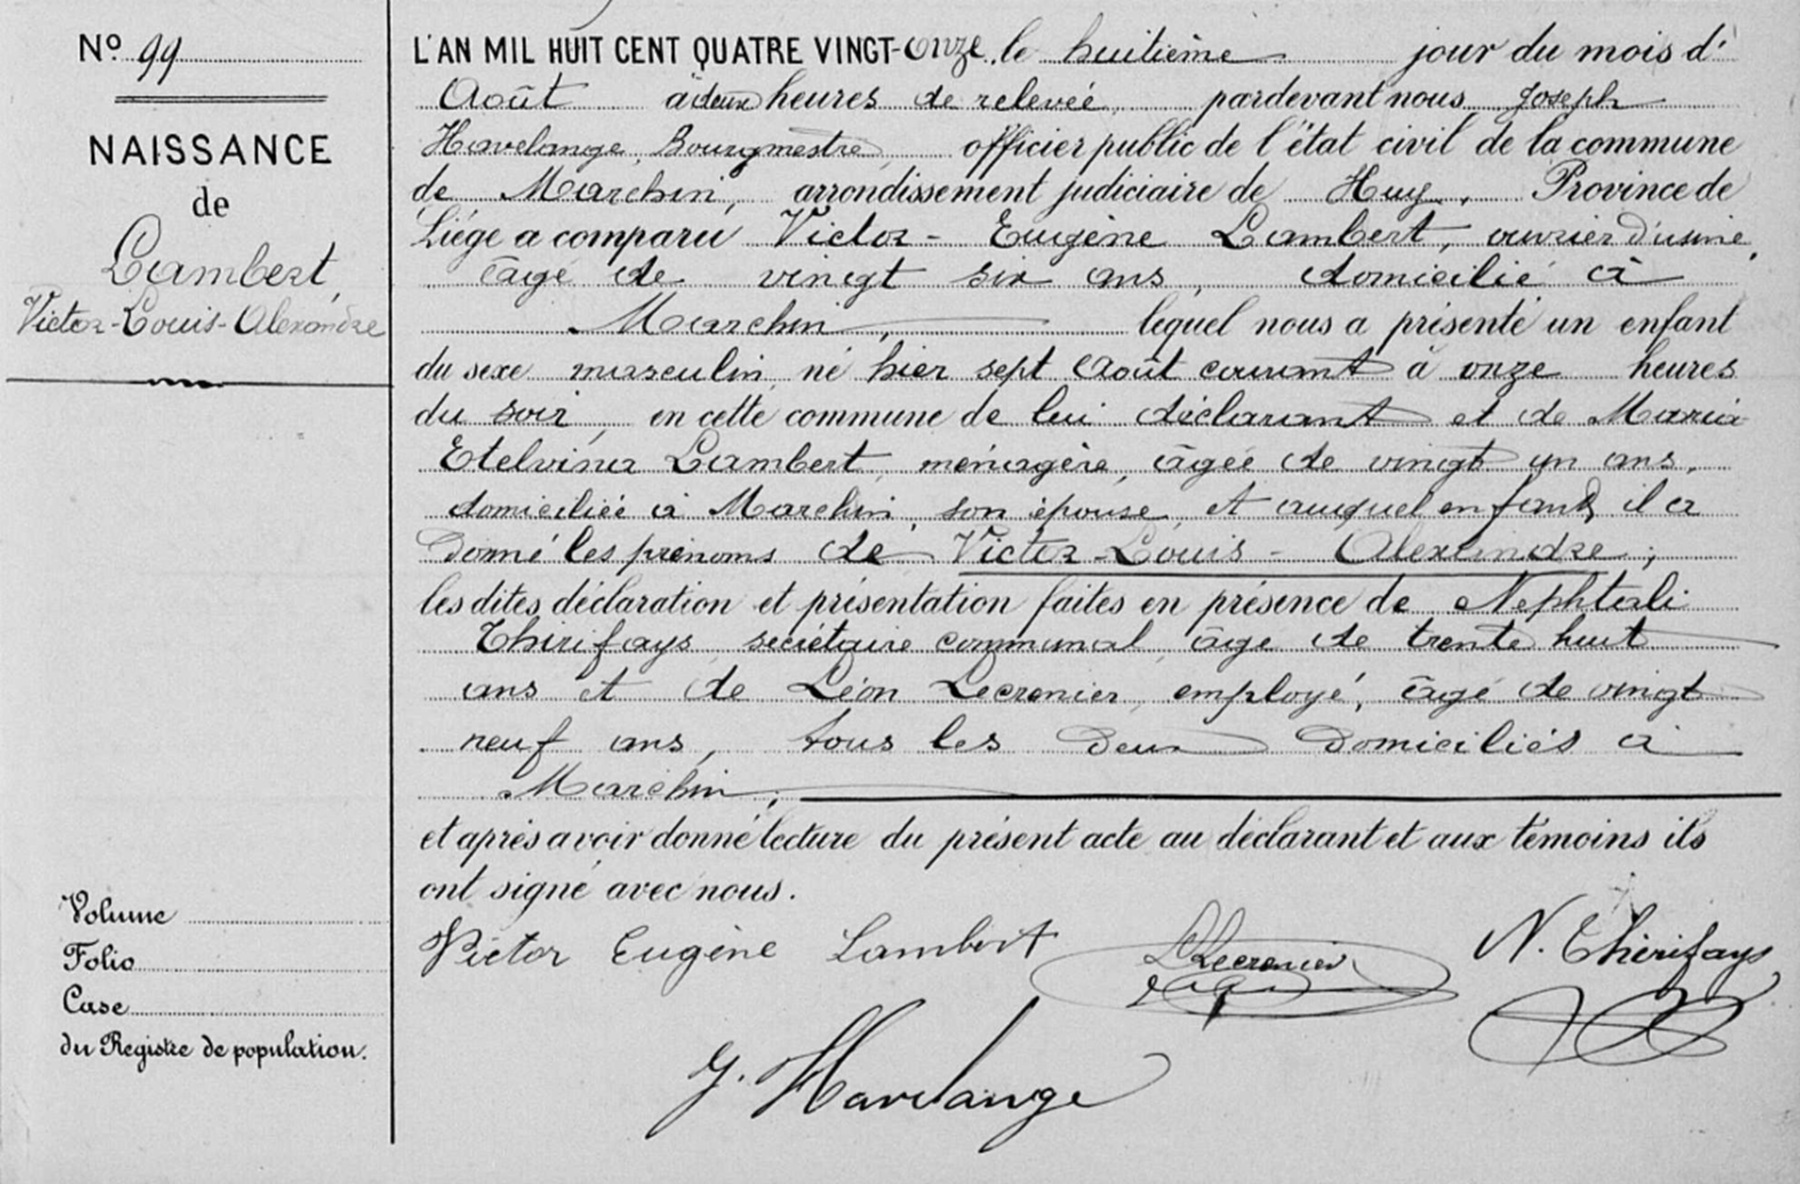 N° 99
NAISSANCE
de
Lambert,
Victor-Louis-Alexandre
L'AN MIL HUIT CENT QUATRE VINGT-onze, le huitième jour du mois d'
Août à deux heures de relevée, pardevant nous, Joseph
Havelange, Bourgmestre, officier public de l'état civil de la commune
de Marchin, arrondissement judiciaire de Huy, Province de
Liége a comparu Victor-Eugène Lambert, ouvrier d'usine,
âgé de vingt six ans, domicilié à
Marchin, lequel nous a présenté un enfant
du sexe masculin, né hier sept Août courant à onze heures
du soir, en cette commune de lui déclarant et de Maria
Etelvina Lambert, ménagère, âgée de vingt un ans,
domiciliée à Marchin, son épouse, et auquel enfant il a
donné les prénoms de Victor-Louis-Alexandre;
les dites déclaration et présentation faites en présence de Nephtali
Thirifays, secrétaire communal, âgé de trente huit
ans et de Léon Lecrenier, employé, âgé de vingt
neuf ans, tous les deux domiciliés à
Marchin;
et après avoir donné lecture du présent acte au déclarant et aux témoins ils
ont signé avec nous.
Victor Eugène Lambert LLecrenier N. Thirifays
J. Havelange
Volume
Folio
Case
du Registre de population.